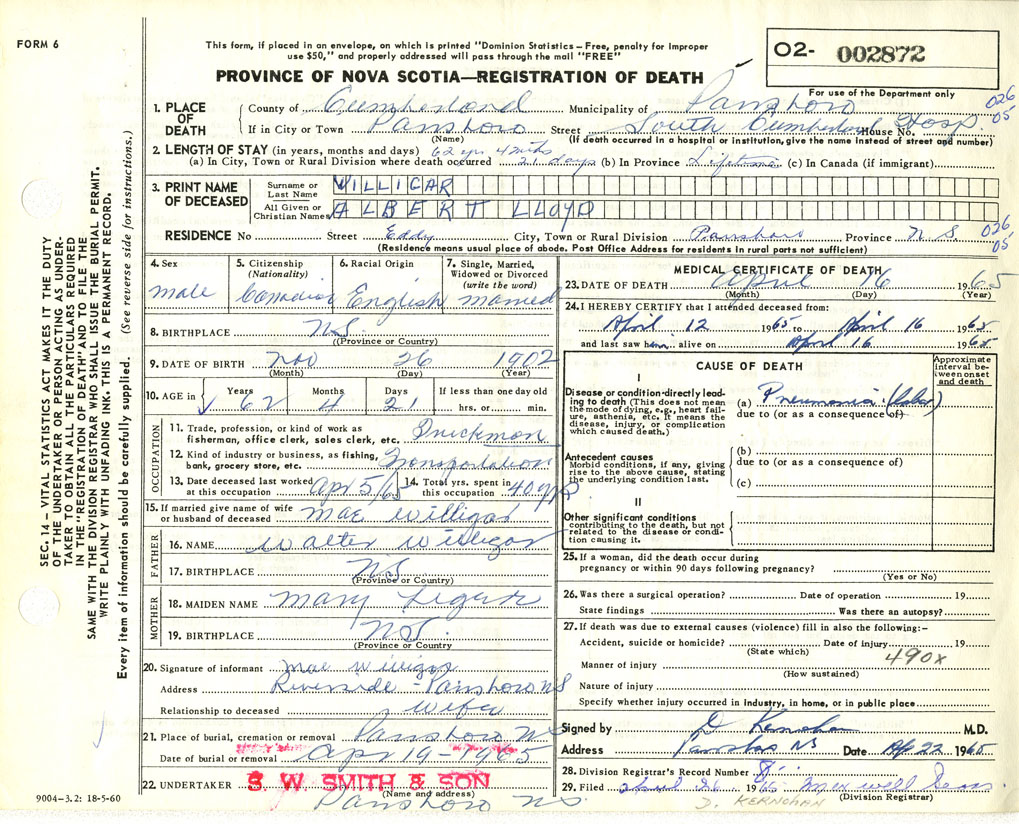 FORM 6
This form, if placed in an envelope, on which is printed "Dominion Statistics—Free, penalty for improper
use $50," and properly addressed will pass through the mail "FREE"
PROVINCE OF NOVA SCOTIA—REGISTRATION OF DEATH
O2- 002872
For use of the Department only
1. PLACE OF DEATH
County of Cumberland Municipality of Parrsboro
026
05
If in City or Town Parrsboro Street South Cumberland Hosp House No.
(Name) (If death occurred in a hospital or institution, give the name instead of street and number)
2. LENGTH OF STAY (in years, months and days) 62 yrs 4 mths
(a) In City, Town or Rural Division where death occurred 21 days (b) In Province Lifetime (c) In Canada (if immigrant)
3. PRINT NAME OF DECEASED
Surname or Last Name WILLIGAR
All Given or Christian Names ALBERT LLOYD
RESIDENCE No Street Eddy City, Town or Rural Division Parrsboro Province N.S.
026
05
(Residence means usual place of abode. Post Office Address for residents in rural parts not sufficient)
4. Sex
male
5. Citizenship
(Nationality)
Canadian
6. Racial Origin
English
7. Single, Married, Widowed or Divorced
(write the word)
married
8. BIRTHPLACE N.S.
(Province or Country)
9. DATE OF BIRTH Nov 26 1902
(Month) (Day) (Year)
10. AGE in Years Months Days If less than one day old
62 4 21 hrs. or min.
OCCUPATION
11. Trade, profession, or kind of work as
fisherman, office clerk, sales clerk, etc. Truckman
12. Kind of industry or business, as fishing,
bank, grocery store, etc. Transportation
13. Date deceased last worked
at this occupation Apr 5/65
14. Total yrs. spent in
this occupation 40 yrs
15. If married give name of wife
or husband of deceased Mae Willigar
FATHER
16. NAME Walter Willigar
17. BIRTHPLACE N.S.
(Province or Country)
MOTHER
18. MAIDEN NAME Mary
19. BIRTHPLACE N.S.
(Province or Country)
20. Signature of informant Mae Willigar
Address Riverside - Parrsboro NS
Relationship to deceased wife
21. Place of burial, cremation or removal Parrsboro NS
Date of burial or removal Apr 19 - 1965
22 UNDERTAKER S. W. SMITH & SON
(Name and address)
Parrsboro NS.
9004-3.2: 18-5-60
MEDICAL CERTIFICATE OF DEATH
23. DATE OF DEATH April 16 1965
(Month) (Day) (Year)
24. I HEREBY CERTIFY that I attended deceased from:
April 12 1965 to April 16 1965
and last saw him alive on April 16 1965.
CAUSE OF DEATH
Approximate interval between onset and death
I
Disease or condition directly leading to death (This does not mean the mode of dying, e.g., heart failure, asthenia, etc. It means the disease, injury, or complication which caused death.)
(a) Pneumonia (lobar)
due to (or as a consequence of)
Antecedent causes
Morbid conditions, if any, giving rise to the above cause, stating the underlying condition last.
(b)
due to (or as a consequence of)
(c)
II
Other significant conditions
contributing to the death, but not related to the disease or condition causing it.
25. If a woman, did the death occur during
pregnancy or within 90 days following pregnancy?
(Yes or No)
26. Was there a surgical operation? Date of operation 19
State findings Was there an autopsy?
27. If death was due to external causes (violence) fill in also the following:—
Accident, suicide or homicide? Date of injury 19
(State which)
490x
Manner of injury
(How sustained)
Nature of injury
Specify whether injury occurred in industry, in home, or in public place
Signed by D Kernohan M.D.
Address Parrsboro NS Date Ap 22 1965
28. Division Registrar's Record Number
29. Filed April 26 1965
(Division Registrar)
D. KERNOHAN
SEC. 14 – VITAL STATISTICS ACT MAKES IT THE DUTY
OF THE UNDERTAKER OR PERSON ACTING AS UNDER-
TAKER TO OBTAIN ALL THE PARTICULARS REQUIRED
IN THE "REGISTRATION OF DEATH" AND TO FILE THE
SAME WITH THE DIVISION REGISTRAR WHO SHALL ISSUE THE BURIAL PERMIT.
WRITE PLAINLY WITH UNFADING INK. THIS IS A PERMANENT RECORD.
Every item of information should be carefully supplied. (See reverse side for instructions.)